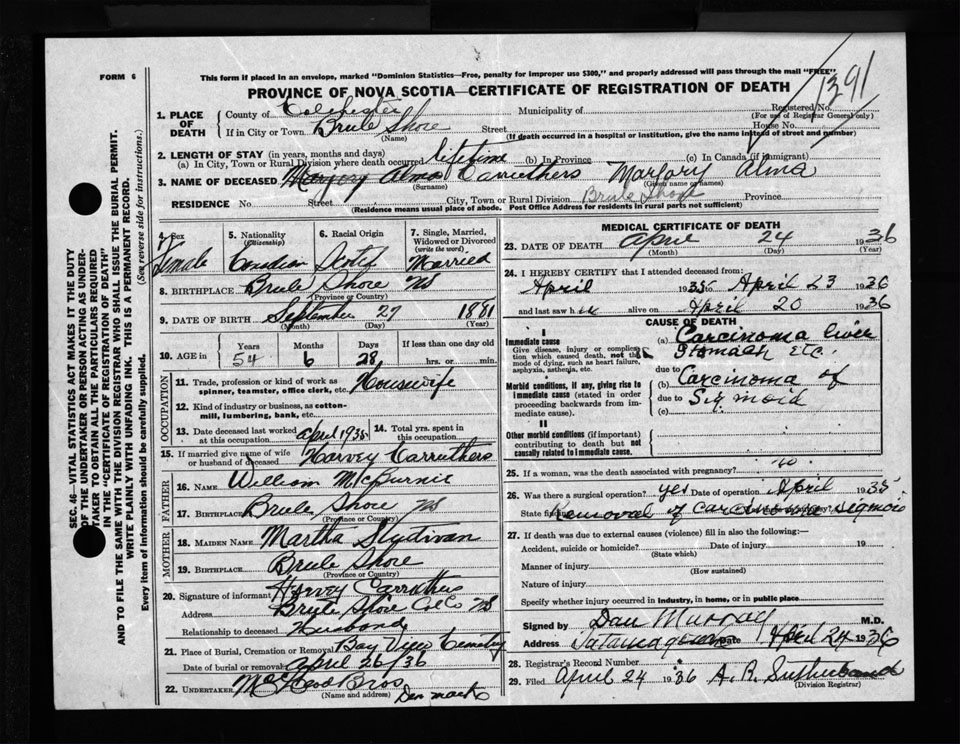 FORM 6
This form if placed in an envelope, marked "Dominion Statistics—Free, penalty for improper use $300," and properly addressed will pass through the mail "FREE"
PROVINCE OF NOVA SCOTIA—CERTIFICATE OF REGISTRATION OF DEATH
1391
Registered No.
(For use of Registrar General only)
1. PLACE OF DEATH
County of Colchester
Municipality of
If in City or Town Brule Shore
(Name)
Street
House No.
(If death occurred in a hospital or institution, give the name instead of street and number)
2. LENGTH OF STAY (in years, months and days)
(a) In City, Town or Rural Division where death occurred lifetime (b) In Province (c) In Canada (if immigrant)
3. NAME OF DECEASED Marjory Alma Carruthers Marjory Alma
(Surname) (Given name or names)
RESIDENCE No Street City, Town or Rural Division Brule Shore Province
(Residence means usual place of abode. Post Office Address for residents in rural parts not sufficient)
SEC. 46—VITAL STATISTICS ACT MAKES IT THE DUTY
OF THE UNDERTAKER OR PERSON ACTING AS UNDER-
TAKER TO OBTAIN ALL THE PARTICULARS REQUIRED
IN THE "CERTIFICATE OF REGISTRATION OF DEATH"
AND TO FILE THE SAME WITH THE DIVISION REGISTRAR WHO SHALL ISSUE THE BURIAL PERMIT.
WRITE PLAINLY WITH UNFADING INK. THIS IS A PERMANENT RECORD.
Every item of information should be carefully supplied.
(See reverse side for instructions.)
4. Sex
Female
5. Nationality
(Citizenship)
Canadian
6. Racial Origin
Scotch
7. Single, Married,
Widowed or Divorced
(write the word)
Married
8. BIRTHPLACE Brule Shore NS
(Province or Country)
9. DATE OF BIRTH September 27 1881
(Month) (Day) (Year)
10. AGE in
Years
54
Months
6
Days
28
If less than one day old
hrs. or min.
OCCUPATION
11. Trade, profession or kind of work as
spinner, teamster, office clerk, etc. Housewife
12. Kind of industry or business, as cotton-
mill, lumbering, bank, etc.
13. Date deceased last worked
at this occupation April 1935
14. Total yrs. spent in
this occupation
15. If married give name of wife
or husband of deceased Harvey Carruthers
FATHER
16. NAME William McBurnie
17. BIRTHPLACE Brule Shore NS
(Province or Country)
MOTHER
18. MAIDEN NAME Martha
19. BIRTHPLACE Brule Shore
(Province or Country)
20. Signature of informant Harvey Carruthers
Address Brule Shore Col Co NS
Relationship to deceased Husband
21. Place of Burial, Cremation or Removal Bay View Cemetery
Date of burial or removal April 26/36
22. UNDERTAKER Bros Denmark
(Name and address)
MEDICAL CERTIFICATE OF DEATH
23. DATE OF DEATH April 24 1936
(Month) (Day) (Year)
24. I HEREBY CERTIFY that I attended deceased from:
April 1935 to April 23 1936
and last saw her alive on April 20 1936
CAUSE OF DEATH
I
Immediate cause
Give disease, injury or complica-
tion which caused death, not the
mode of dying, such as heart failure,
asphyxia, asthenia, etc.
(a) Carcinoma liver
Stomach etc.
due to
Morbid conditions, if any, giving rise to
immediate cause (stated in order
proceeding backwards from im-
mediate cause).
(b) Carcinoma of
due to Sigmoid
(c)
II
Other morbid conditions (if important)
contributing to death but not
causally related to immediate cause.
25. If a woman, was the death associated with pregnancy? no
26. Was there a surgical operation? yes Date of operation April 1935
State findings Removal of carcinoma sigmoid
27. If death was due to external causes (violence) fill in also the following:—
Accident, suicide or homicide? Date of injury 19
(State which)
Manner of injury
(How sustained)
Nature of injury
Specify whether injury occurred in industry, in home, or in public place
Signed by Dan Murray M.D.
Address Tatamagouche Date April 24 1936
28. Registrar's Record Number
29. Filed April 24 1936 A. R. Sutherland
(Division Registrar)